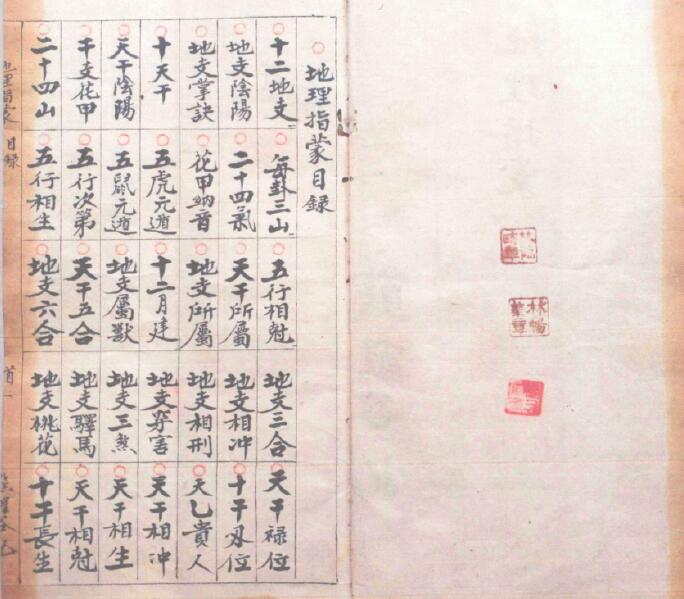 地理指蒙目錄
十二地支
地支陰陽
地支掌訣
十天干
天干陰陽
干支花甲
二十四山
每卦三山
二十四氣
花甲納音
五虎元遁
五鼠元遁
五行次第
五行相生
五行相尅
天干所屬
地支所屬
十二月建
地支屬獸
天干五合
地支六合
地支三合
地支相冲
地支相刑
地支穿害
地支三煞
地支驛馬
地支桃花
天干祿位
十干刃位
天乙貴人
天干相冲
天干相生
天干相尅
十干長生
地理指蒙
目錄
首一